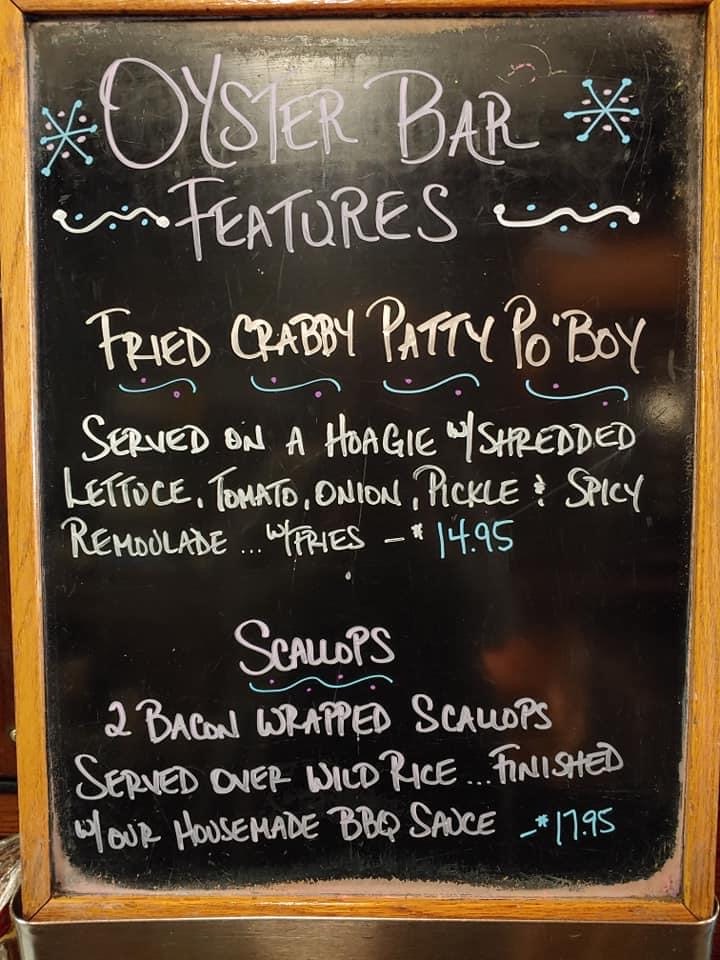 OYSTER BAR
FEATURES
FRIED CRABBY PATTY PO'BOY
SERVED ON A HOAGIE W/SHREDDED
LETTUCE, TOMATO, ONION, PICKLE & SPICY
REMOULADE... W/FRIES - $14.95
SCALLOPS
2 BACON WRAPPED SCALLOPS
SERVED OVER WILD RICE... FINISHED
W/ OUR HOUSEMADE BBQ SAUCE - $17.95